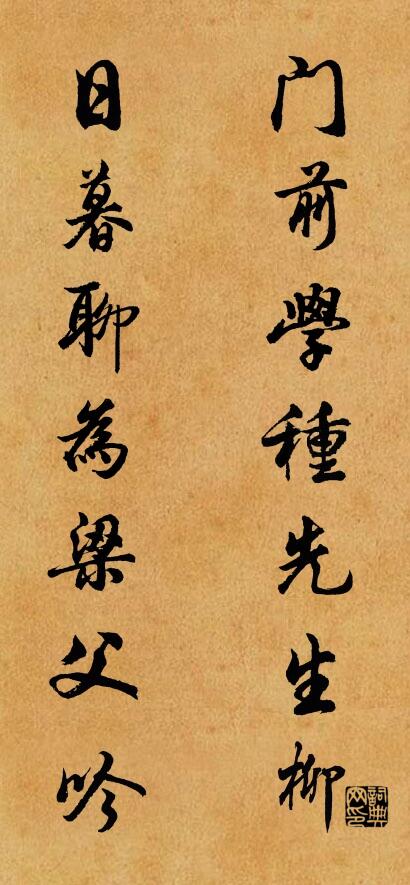 门前學種先生柳
日暮聊為梁父吟
詞典网印